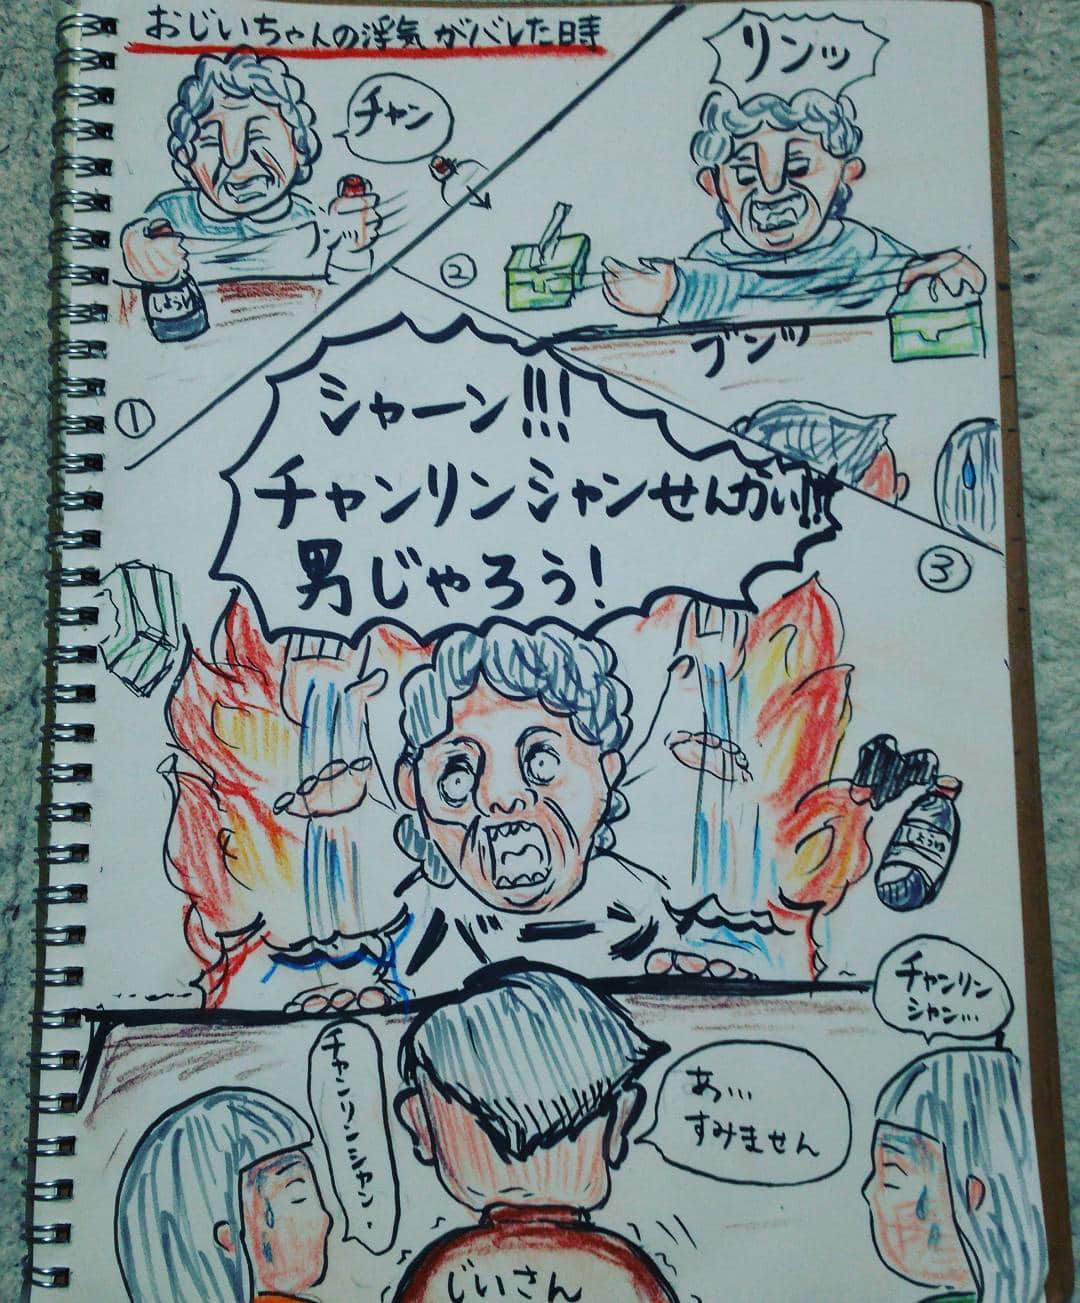 おじいちゃんの浮気がバレた時
チャン
しょうゆ
①
リンッ
②
ブンッ
③
シャーン!!!
チャンリンシャンせんかい!!!
男じゃろう!
しょうゆ
バーン
チャンリンシャン・
あ…
すみません
チャンリン
シャン…
じいさん